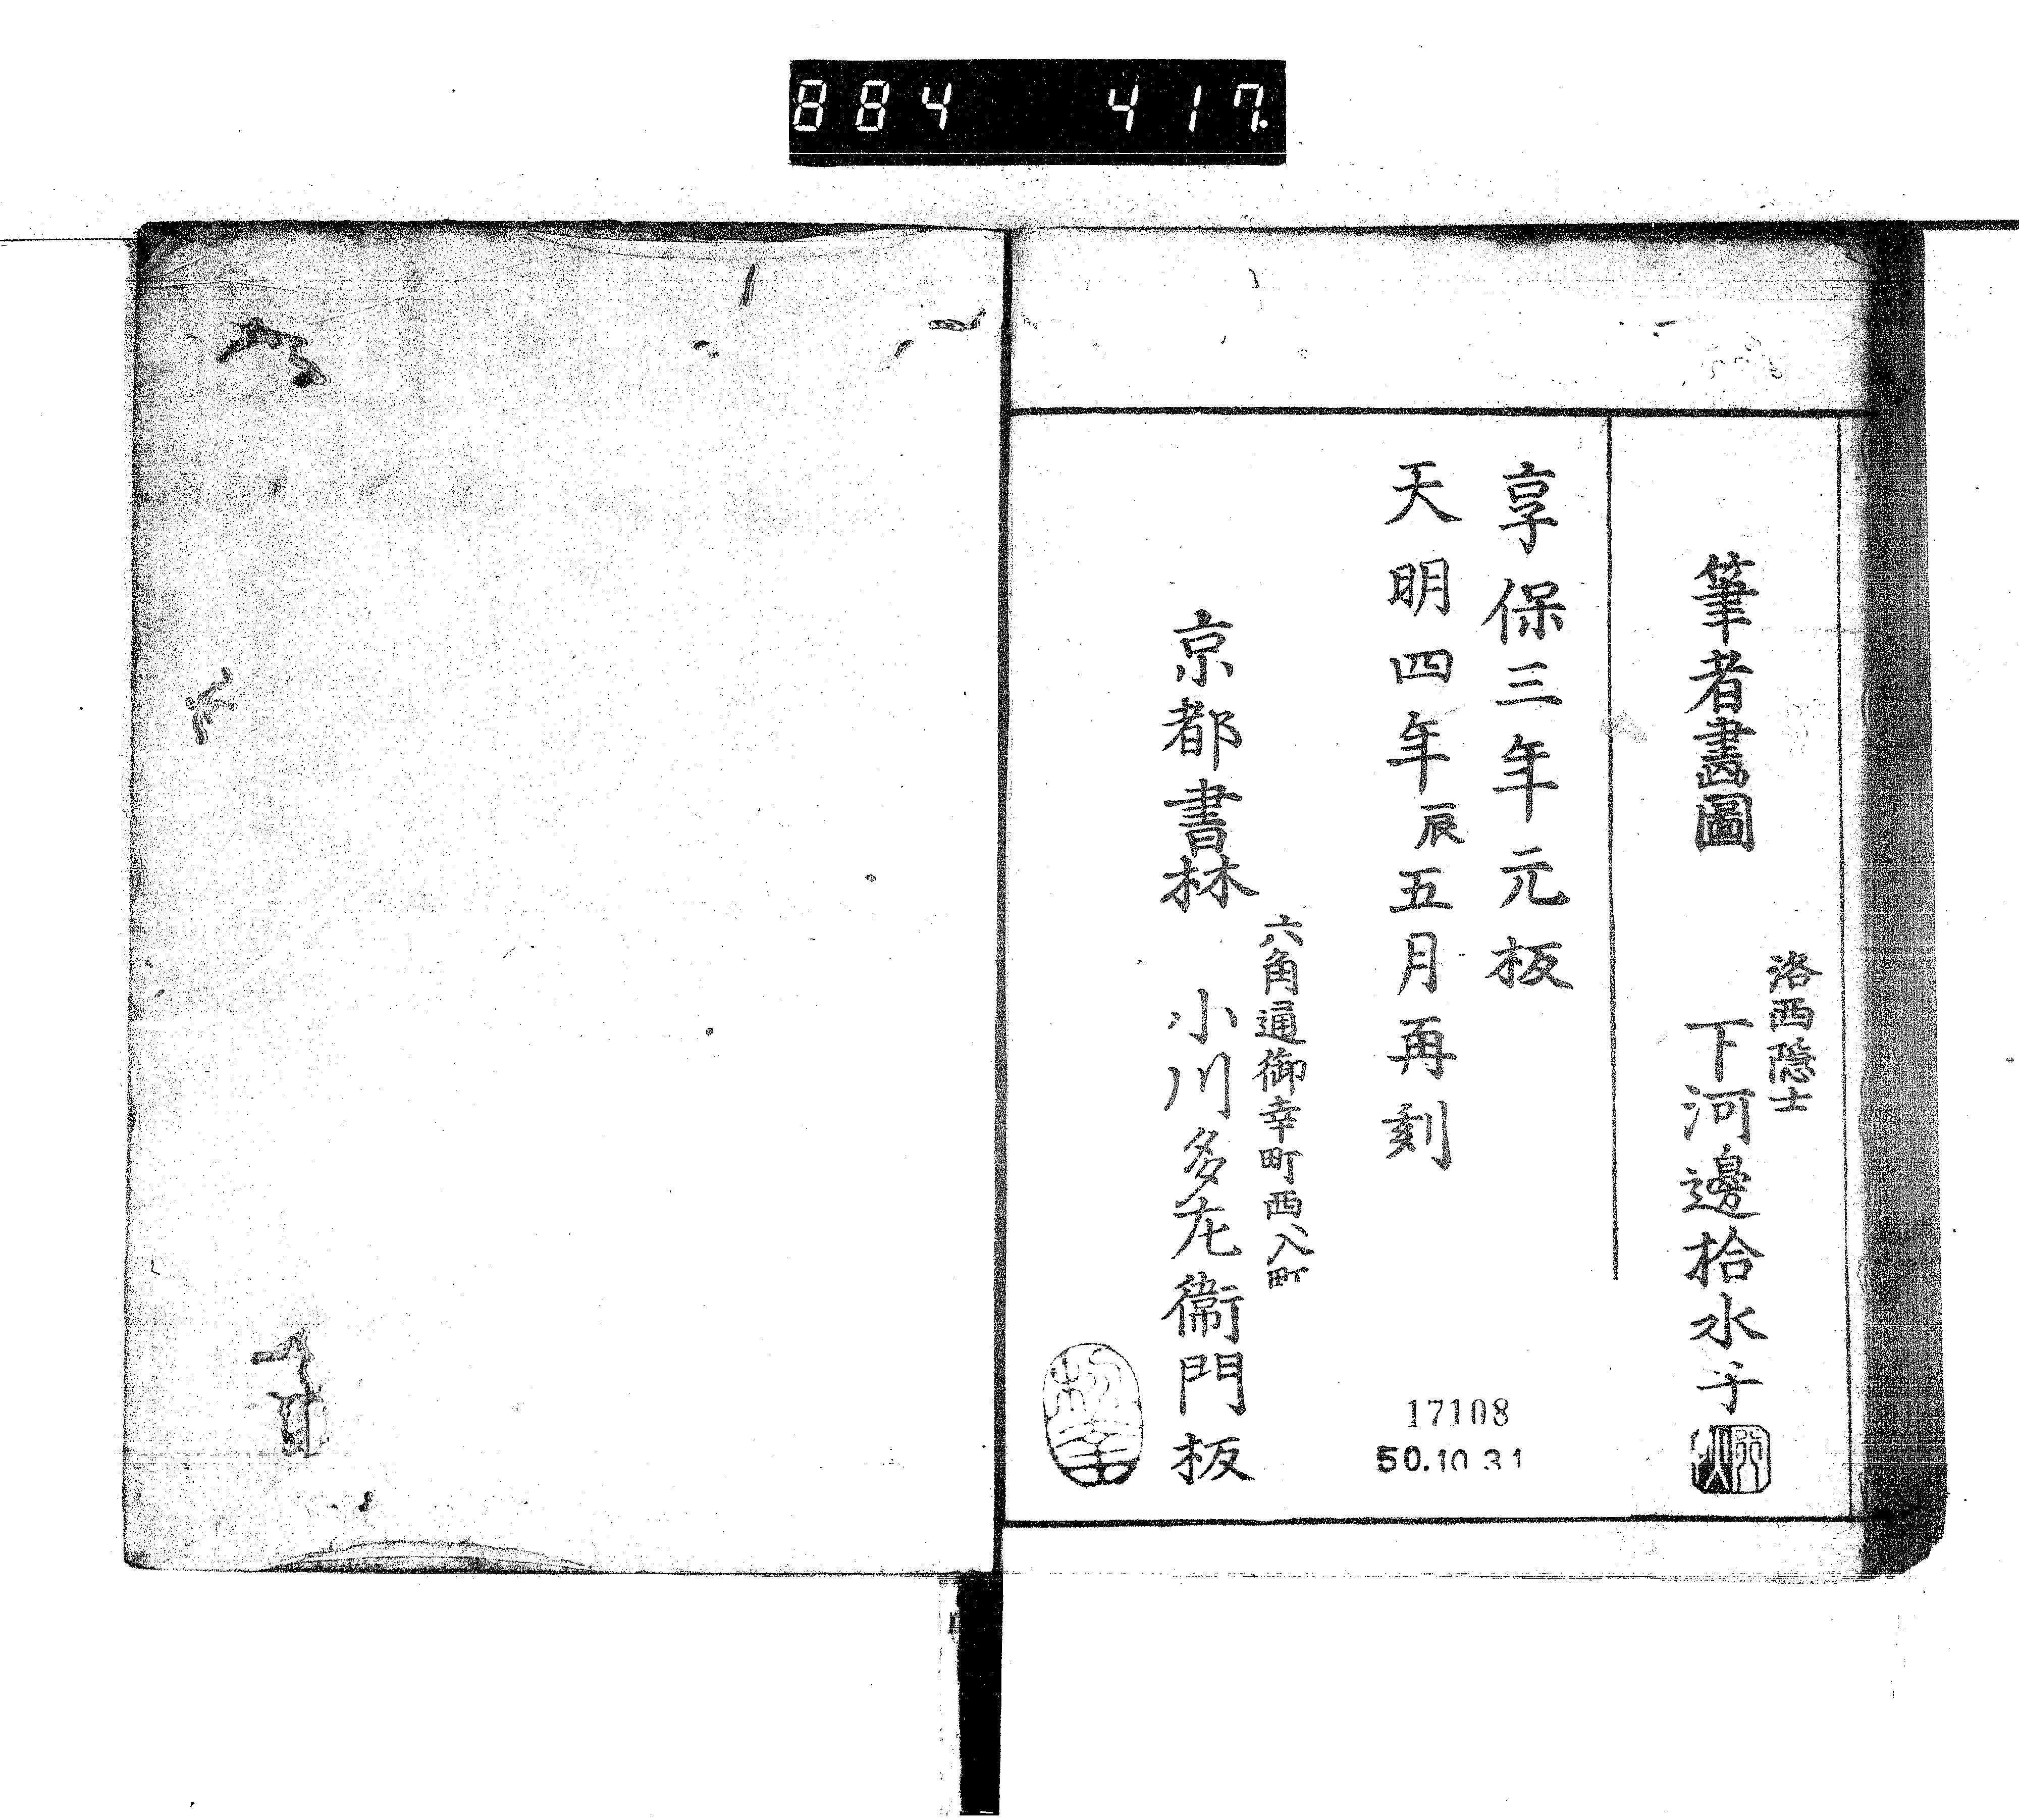 884 417.
筆者畫圖
洛西隠士
下河邊拾水子
享保三年元板
天明四年辰五月再刻
六角通御幸町西入町
京都書林 小川多左衞門板
17108
50.10 31